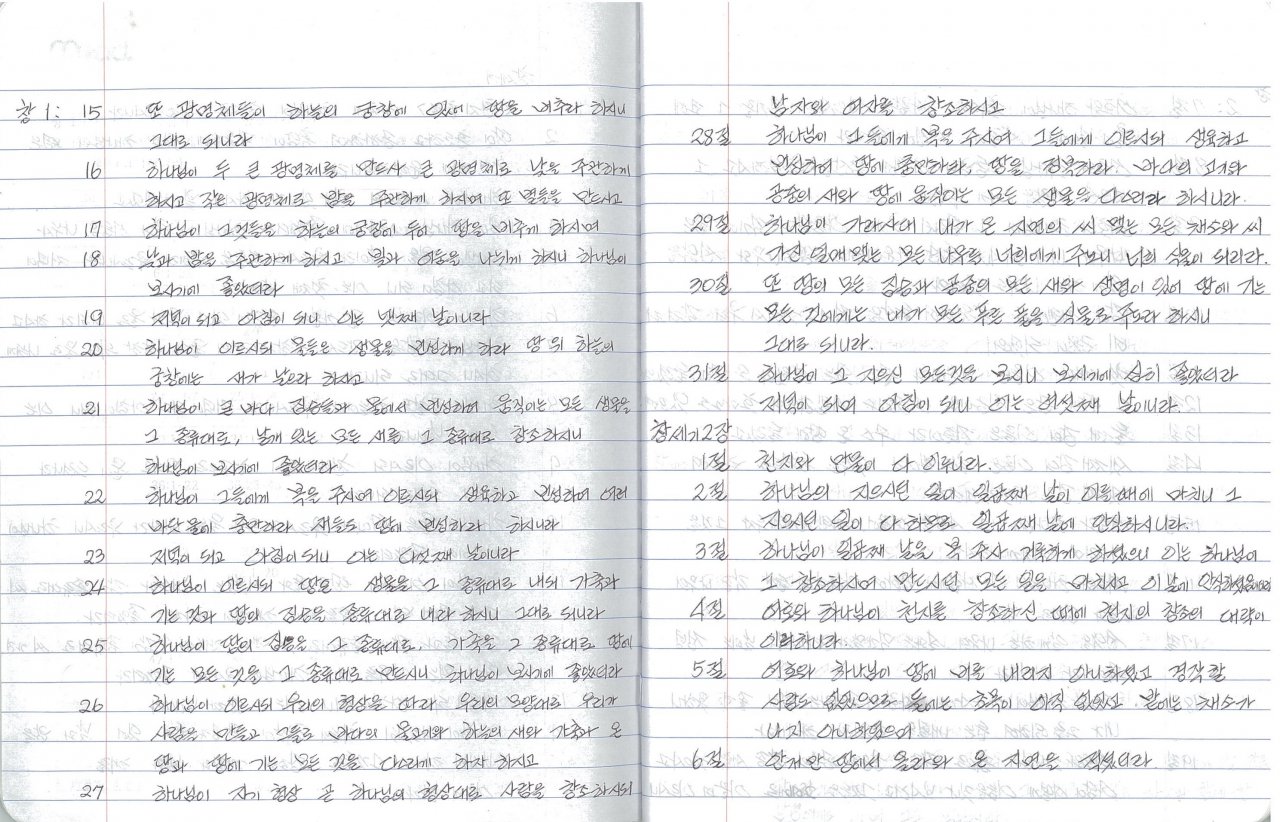 창 1: 15 또 광명체들이 하늘의 궁창에 있어 땅을 비추라 하시니
그대로 되니라
16 하나님이 두 큰 광명체를 만드사 큰 광명체로 낮을 주관하게
하시고 작은 광명체로 밤을 주관하게 하시며 또 별들을 만드시고
17 하나님이 그것들을 하늘의 궁창에 두어 땅을 비추게 하시며
18 낮과 밤을 주관하게 하시고 빛과 어둠을 나뉘게 하시니 하나님이
보시기에 좋았더라
19 저녁이 되고 아침이 되니 이는 넷째 날이니라
20 하나님이 이르시되 물들은 생물을 번성하게 하라 땅 위 하늘의
궁창에는 새가 날으라 하시고
21 하나님이 큰 바다 짐승들과 물에서 번성하여 움직이는 모든 생물을
그 종류대로, 날개 있는 모든 새를 그 종류대로 창조하시니
하나님이 보시기에 좋았더라
22 하나님이 그들에게 복을 주시며 이르시되 생육하고 번성하여 여러
바닷물에 충만하라 새들도 땅에 번성하라 하시니라
23 저녁이 되고 아침이 되니 이는 다섯째 날이니라
24 하나님이 이르시되 땅은 생물을 그 종류대로 내되 가축과
기는 것과 땅의 짐승을 종류대로 내라 하시니 그대로 되니라
25 하나님이 땅의 짐승을 그 종류대로, 가축을 그 종류대로 땅에
기는 모든 것을 그 종류대로 만드시니 하나님이 보시기에 좋았더라
26 하나님이 이르시되 우리의 형상을 따라 우리의 모양대로 우리가
사람을 만들고 그들로 바다의 물고기와 하늘의 새와 가축과 온
땅과 땅에 기는 모든 것을 다스리게 하자 하시고
27 하나님이 자기 형상 곧 하나님의 형상대로 사람을 창조하시되
남자와 여자를 창조하시고
28절 하나님이 그들에게 복을 주시며 그들에게 이르시되 생육하고
번성하여 땅에 충만하라, 땅을 정복하라. 바다의 고기와
공중의 새와 땅에 움직이는 모든 생물을 다스리라 하시니라.
29절 하나님이 가라사대 내가 온 지면의 씨 맺는 모든 채소와 씨
가진 열매 맺는 모든 나무를 너희에게 주노니 너희 식물이 되리라.
30절 또 땅의 모든 짐승과 공중의 모든 새와 생명이 있어 땅에 기는
모든 것에게는 내가 모든 푸른 풀을 식물로 주노라 하시니
그대로 되니라.
31절 하나님이 그 지으신 모든것을 보시니 보시기에 심히 좋았더라
저녁이 되며 아침이 되니 이는 여섯째 날이니라.
창세기 2장
1절 천지와 만물이 다 이루니라.
2절 하나님의 지으시던 일이 일곱째 날이 이를 때에 마치니 그
지으시던 일이 다 하므로 일곱째 날에 안식하시니라.
3절 하나님이 일곱째 날을 복 주사 거룩하게 하셨으니 이는 하나님이
그 창조하시며 만드시던 모든 일을 마치시고 이 날에 안식하셨음이더라
4절 여호와 하나님이 천지를 창조하신 때에 천지의 창조의 대략이
이러하니라.
5절 여호와 하나님이 땅에 비를 내리지 아니하셨고 경작할
사람도 없었으므로 들에는 초목이 아직 없었고 밭에는 채소가
나지 아니하였으며
6절 안개만 땅에서 올라와 온 지면을 적셨더라